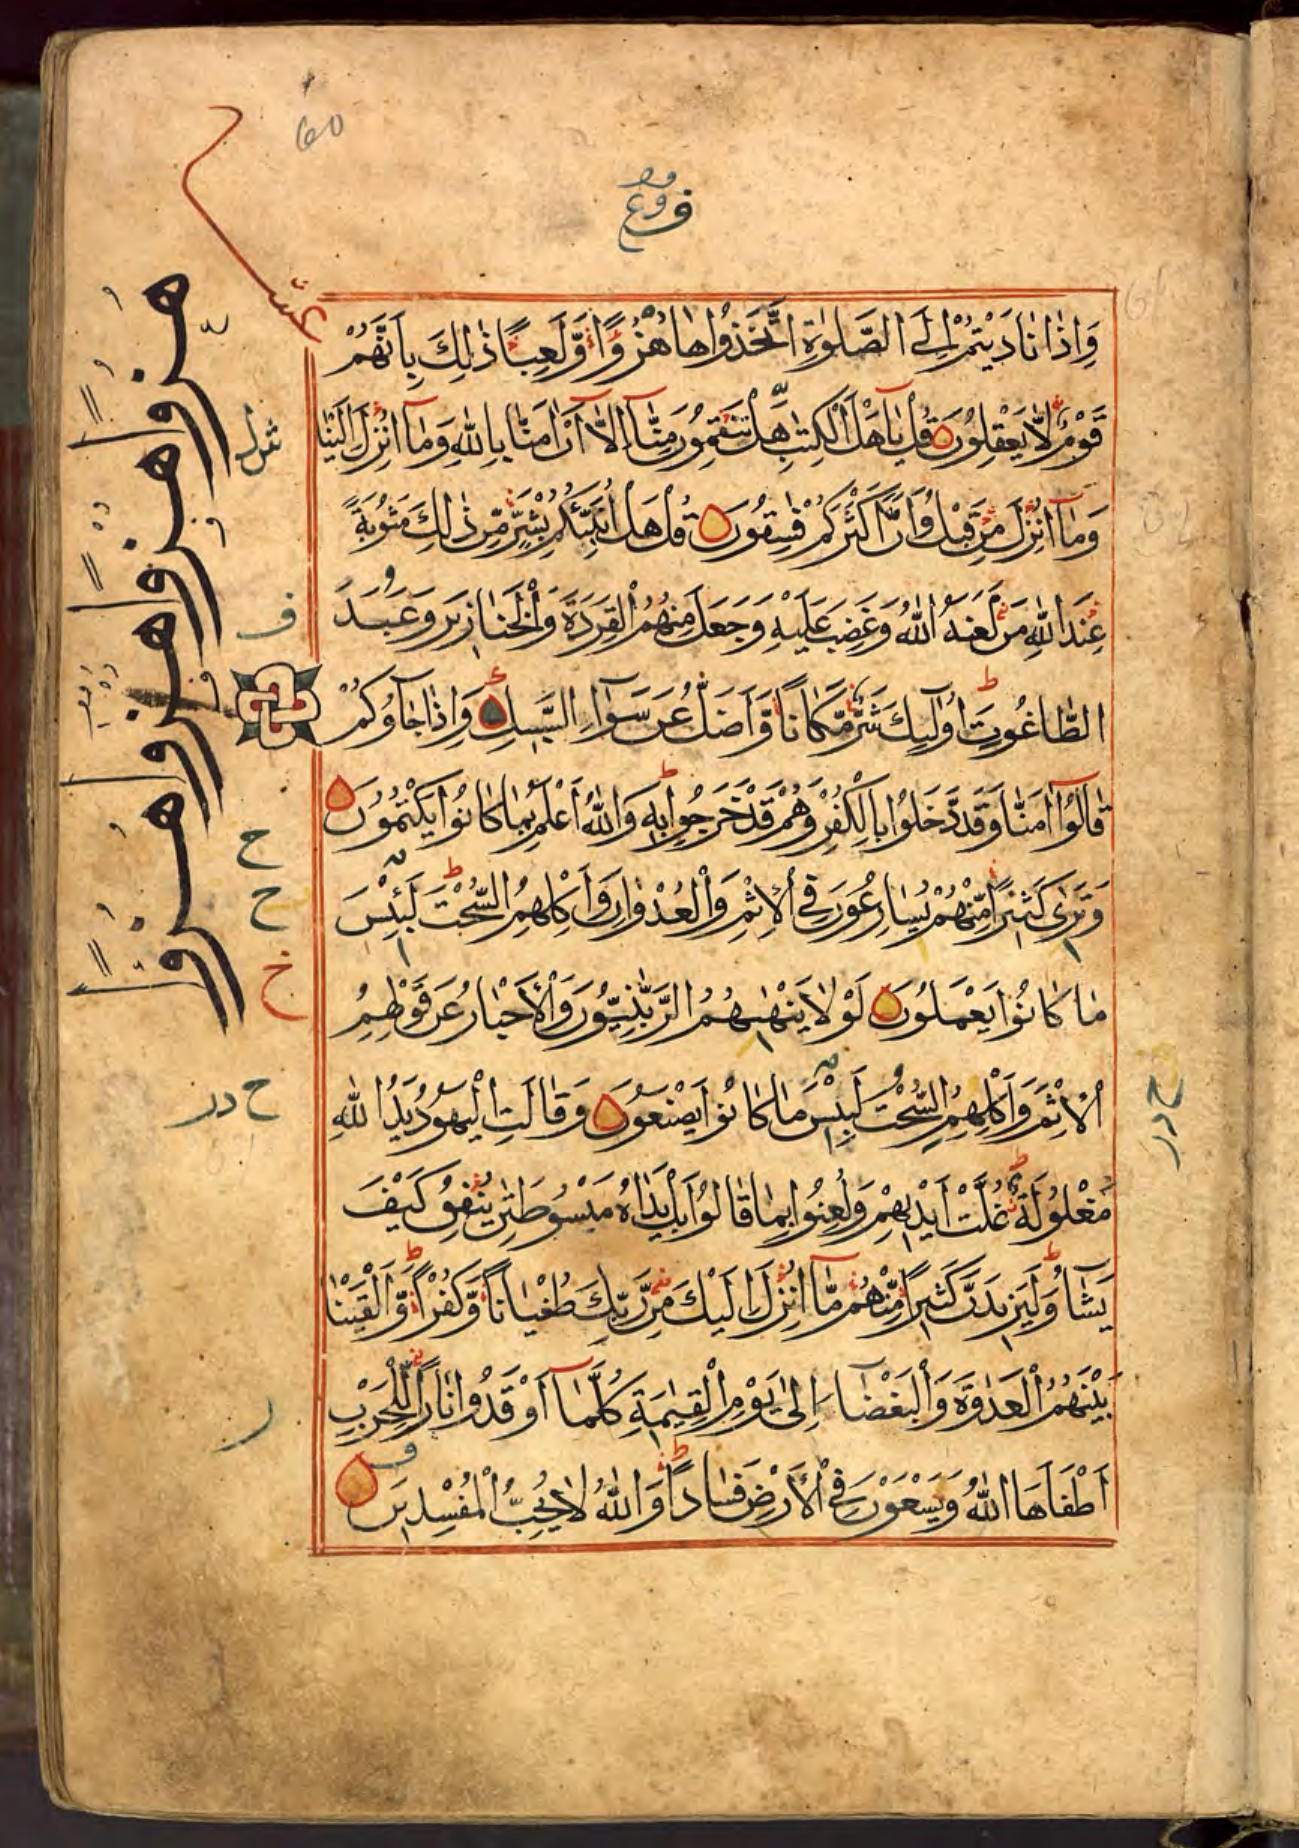 60
وَإِذَا نَادَيْتُمْ إِلَى الصَّلٰوةِ اتَّخَذُوْهَا هُزُوًا وَّلَعِبًا ذٰلِكَ بِأَنَّهُمْ
قَوْمٌ لَّا يَعْقِلُونَ قُلْ يٰأَهْلَ الْكِتٰبِ هَلْ تَنْقِمُونَ مِنَّآ إِلَّآ أَنْ اٰمَنَّا بِاللهِ وَمَآ أُنْزِلَ إِلَيْنَا
وَمَآ أُنْزِلَ مِنْ قَبْلُ وَأَنَّ أَكْثَرَكُمْ فٰسِقُونَ قُلْ هَلْ أُنَبِّئُكُمْ بِشَرٍّ مِّنْ ذٰلِكَ مَثُوبَةً
عِنْدَ اللهِ مَنْ لَعَنَهُ اللهُ وَغَضِبَ عَلَيْهِ وَجَعَلَ مِنْهُمُ الْقِرَدَةَ وَالْخَنَازِيرَ وَعَبَدَ
الطَّاغُوتَ أُولٰٓئِكَ شَرٌّ مَّكَانًا وَّأَضَلُّ عَنْ سَوَآءِ السَّبِيلِ وَإِذَا جَآؤُكُمْ
قَالُوْآ اٰمَنَّا وَقَدْ دَّخَلُوْا بِالْكُفْرِ وَهُمْ قَدْ خَرَجُوْا بِهِ وَاللهُ أَعْلَمُ بِمَا كَانُوْا يَكْتُمُونَ
وَتَرٰى كَثِيرًا مِّنْهُمْ يُسَارِعُونَ فِي الْإِثْمِ وَالْعُدْوَانِ وَأَكْلِهِمُ السُّحْتَ لَبِئْسَ
مَا كَانُوْا يَعْمَلُونَ لَوْلَا يَنْهٰىهُمُ الرَّبّٰنِيُّونَ وَالْأَحْبَارُ عَنْ قَوْلِهِمُ
الْإِثْمَ وَأَكْلِهِمُ السُّحْتَ لَبِئْسَ مَا كَانُوْا يَصْنَعُونَ وَقَالَتِ الْيَهُودُ يَدُ اللهِ
مَغْلُولَةٌ غُلَّتْ أَيْدِيهِمْ وَلُعِنُوْا بِمَا قَالُوْا بَلْ يَدَاهُ مَبْسُوطَتٰنِ يُنْفِقُ كَيْفَ
يَشَآءُ وَلَيَزِيدَنَّ كَثِيرًا مِّنْهُمْ مَّآ أُنْزِلَ إِلَيْكَ مِنْ رَّبِّكَ طُغْيَانًا وَّكُفْرًا وَّأَلْقَيْنَا
بَيْنَهُمُ الْعَدٰوَةَ وَالْبَغْضَآءَ إِلٰى يَوْمِ الْقِيٰمَةِ كُلَّمَآ أَوْقَدُوْا نَارًا لِّلْحَرْبِ
أَطْفَأَهَا اللهُ وَيَسْعَوْنَ فِي الْأَرْضِ فَسَادًا وَاللهُ لَا يُحِبُّ الْمُفْسِدِينَ
عشر
هزوا هزوا هزوا هزوا
ف
ح
ح
خ
ح در
ر
ح در